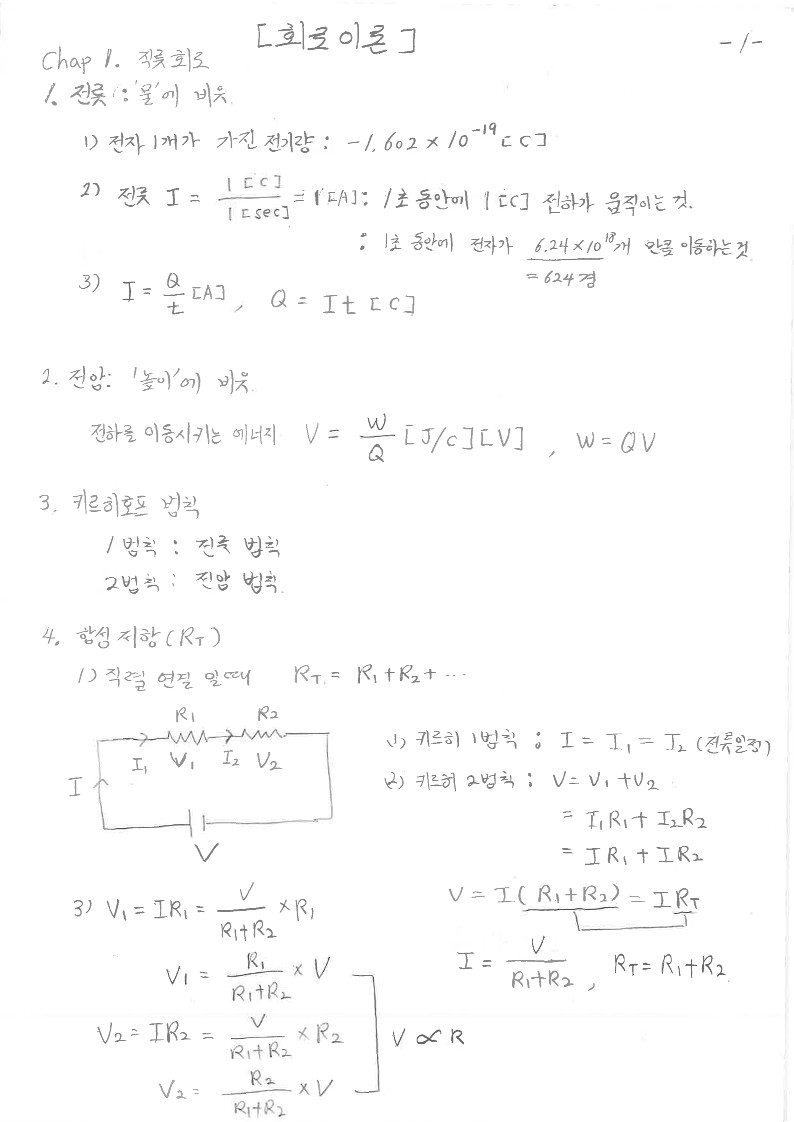 [회로이론]
-1-
Chap 1. 직류회로
1. 전류 : '물'에 비유
1) 전자 1개가 가진 전기량 : -1.602 × 10^-19 [C]
2) 전류 I = 1[C] / 1[sec] = 1[A] : 1초 동안에 1[C] 전하가 움직이는 것.
: 1초 동안에 전자가 6.24×10^18개 만큼 이동하는 것
= 624경
3) I = Q/t [A], Q = It [C]
2. 전압: '높이'에 비유
전하를 이동시키는 에너지 V = W/Q [J/C][V], W = QV
3. 키르히호프 법칙
1법칙 : 전류 법칙
2법칙 : 전압 법칙
4. 합성저항(R_T)
1) 직렬 연결 일때 R_T = R1+R2+ ···
R1 R2
I I1 V1 I2 V2
V
1) 키르히 1법칙 : I = I1 = I2 (전류일정)
2) 키르히 2법칙 : V = V1 + V2
= I1R1 + I2R2
= IR1 + IR2
V = I(R1+R2) = IR_T
I = V / (R1+R2), R_T = R1+R2
3) V1 = IR1 = V / (R1+R2) × R1
V1 = R1 / (R1+R2) × V
V2 = IR2 = V / (R1+R2) × R2
V2 = R2 / (R1+R2) × V
V ∝ R